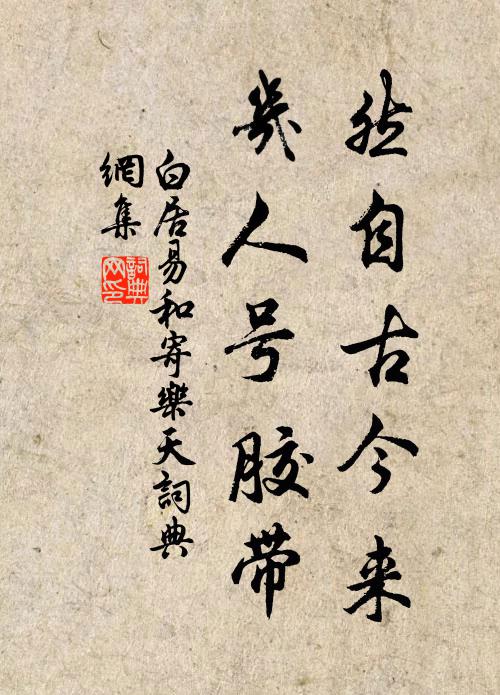 然自古今来
几人号胶带
白居易和寄樂天詞典
網集
詞典
网印